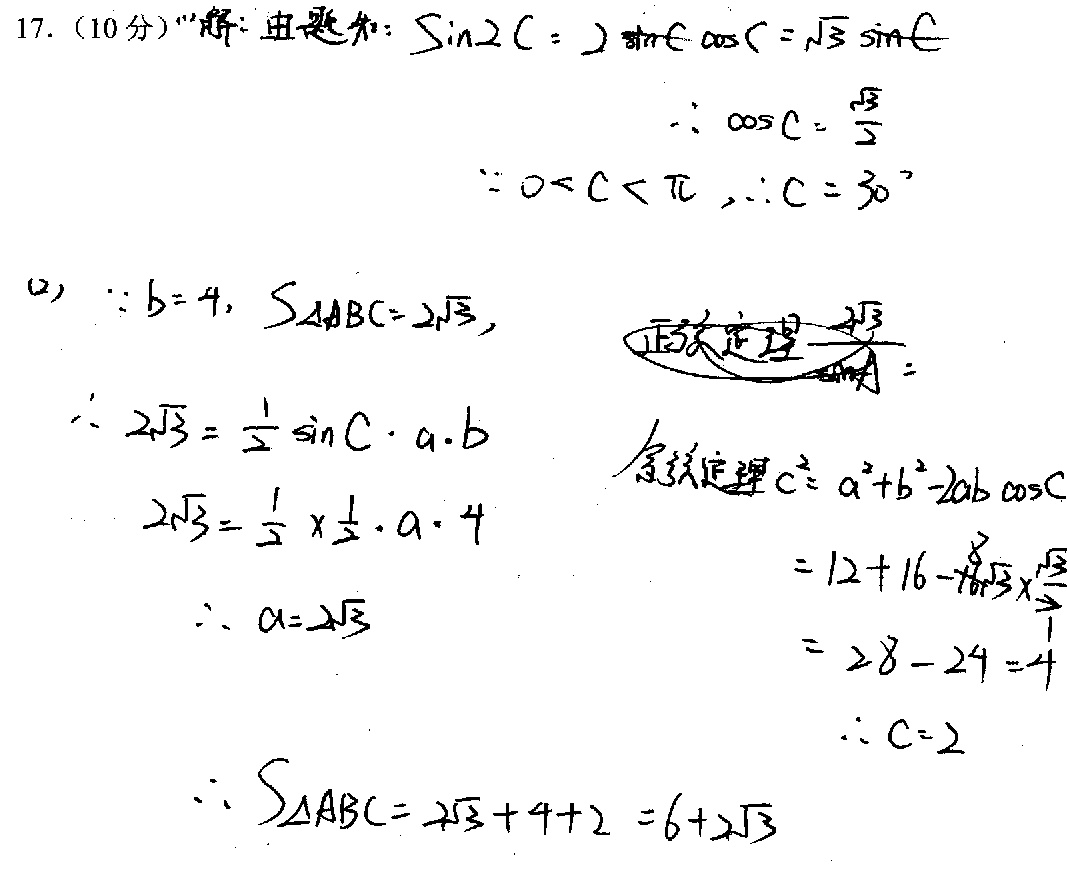 17.（10分）(1)解：由题知：Sin2C = 2 sinC cosC = √3 sinC
∴ cosC = √3/2
∵ 0 < C < π ，∴ C = 30°
(2) ∵ b = 4, S△ABC = 2√3,
∴ 2√3 = 1/2 sinC · a · b
2√3 = 1/2 × 1/2 · a · 4
∴ a = 2√3
正弦定理 2√3/sinA =
余弦定理 c² = a² + b² - 2ab cosC
= 12 + 16 - 16√3 × √3/2
= 28 - 24 = 4
∴ C = 2
∴ S△ABC = 2√3 + 4 + 2 = 6 + 2√3